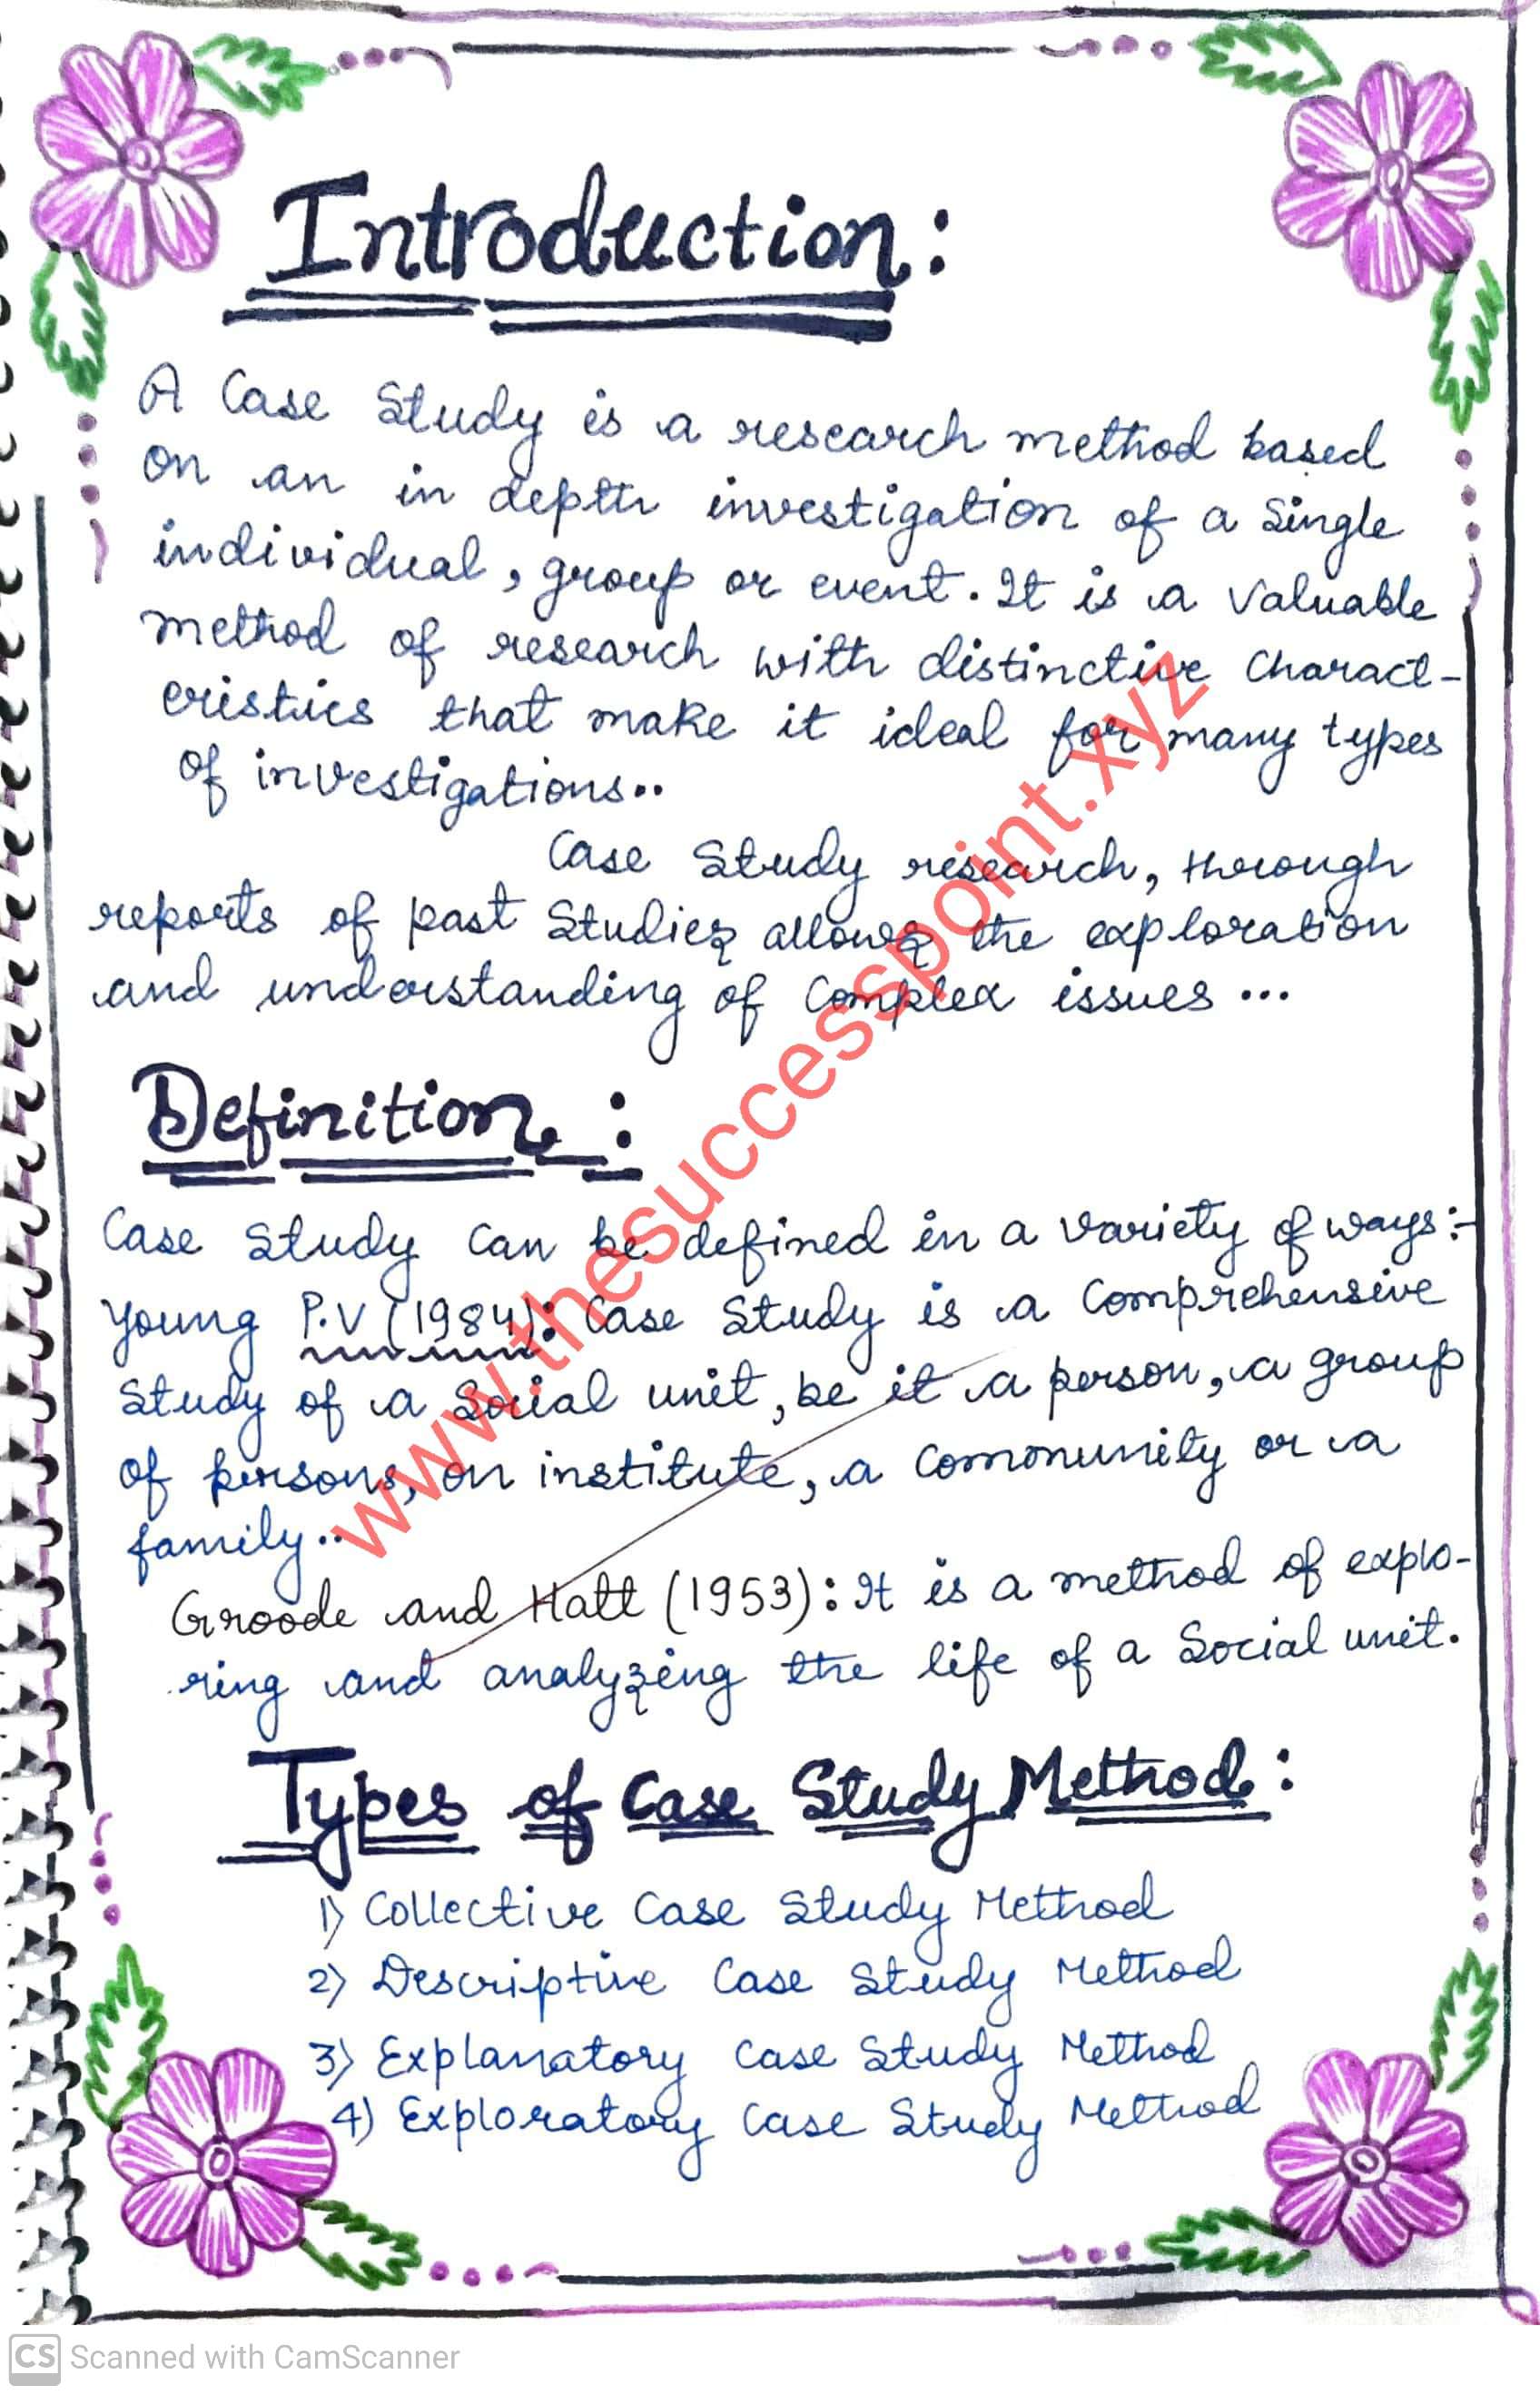 Introduction:
A Case Study is a research method based
on an in depth investigation of a single
individual, group or event. It is a valuable
method of research with distinctive charact-
eristics that make it ideal for many types
of investigations..
Case Study research, through
reports of past Studies allows the exploration
and understanding of complex issues ...
Definition :
Case Study can be defined in a variety of ways:-
Young P.V (1984): Case Study is a comprehensive
Study of a Social unit, be it a person, a group
of persons, on institute, a community or a
family..
Groode and Hatt (1953): It is a method of explo-
ring and analyzing the life of a Social unit.
Types of Case Study Method:
1) Collective Case Study Method
2) Descriptive Case Study Method
3) Explanatory Case Study Method
4) Exploratory Case Study Method
www.thesuccesspoint.xyz
CS Scanned with CamScanner